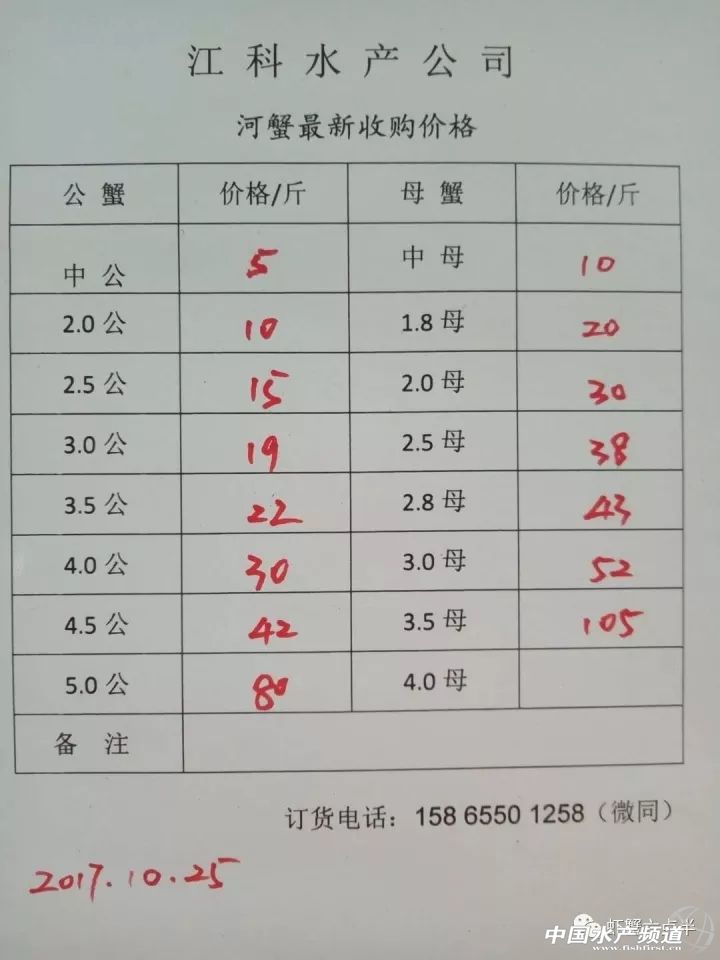 江科水产公司
河蟹最新收购价格
公蟹 价格/斤 母蟹 价格/斤
中公 5 中母 10
2.0公 10 1.8母 20
2.5公 15 2.0母 30
3.0公 19 2.5母 38
3.5公 22 2.8母 43
4.0公 30 3.0母 52
4.5公 42 3.5母 105
5.0公 80 4.0母
备注
订货电话：158 6550 1258（微同）
2017.10.25
虾蟹六点半
中国水产频道
www.fishfirst.cn